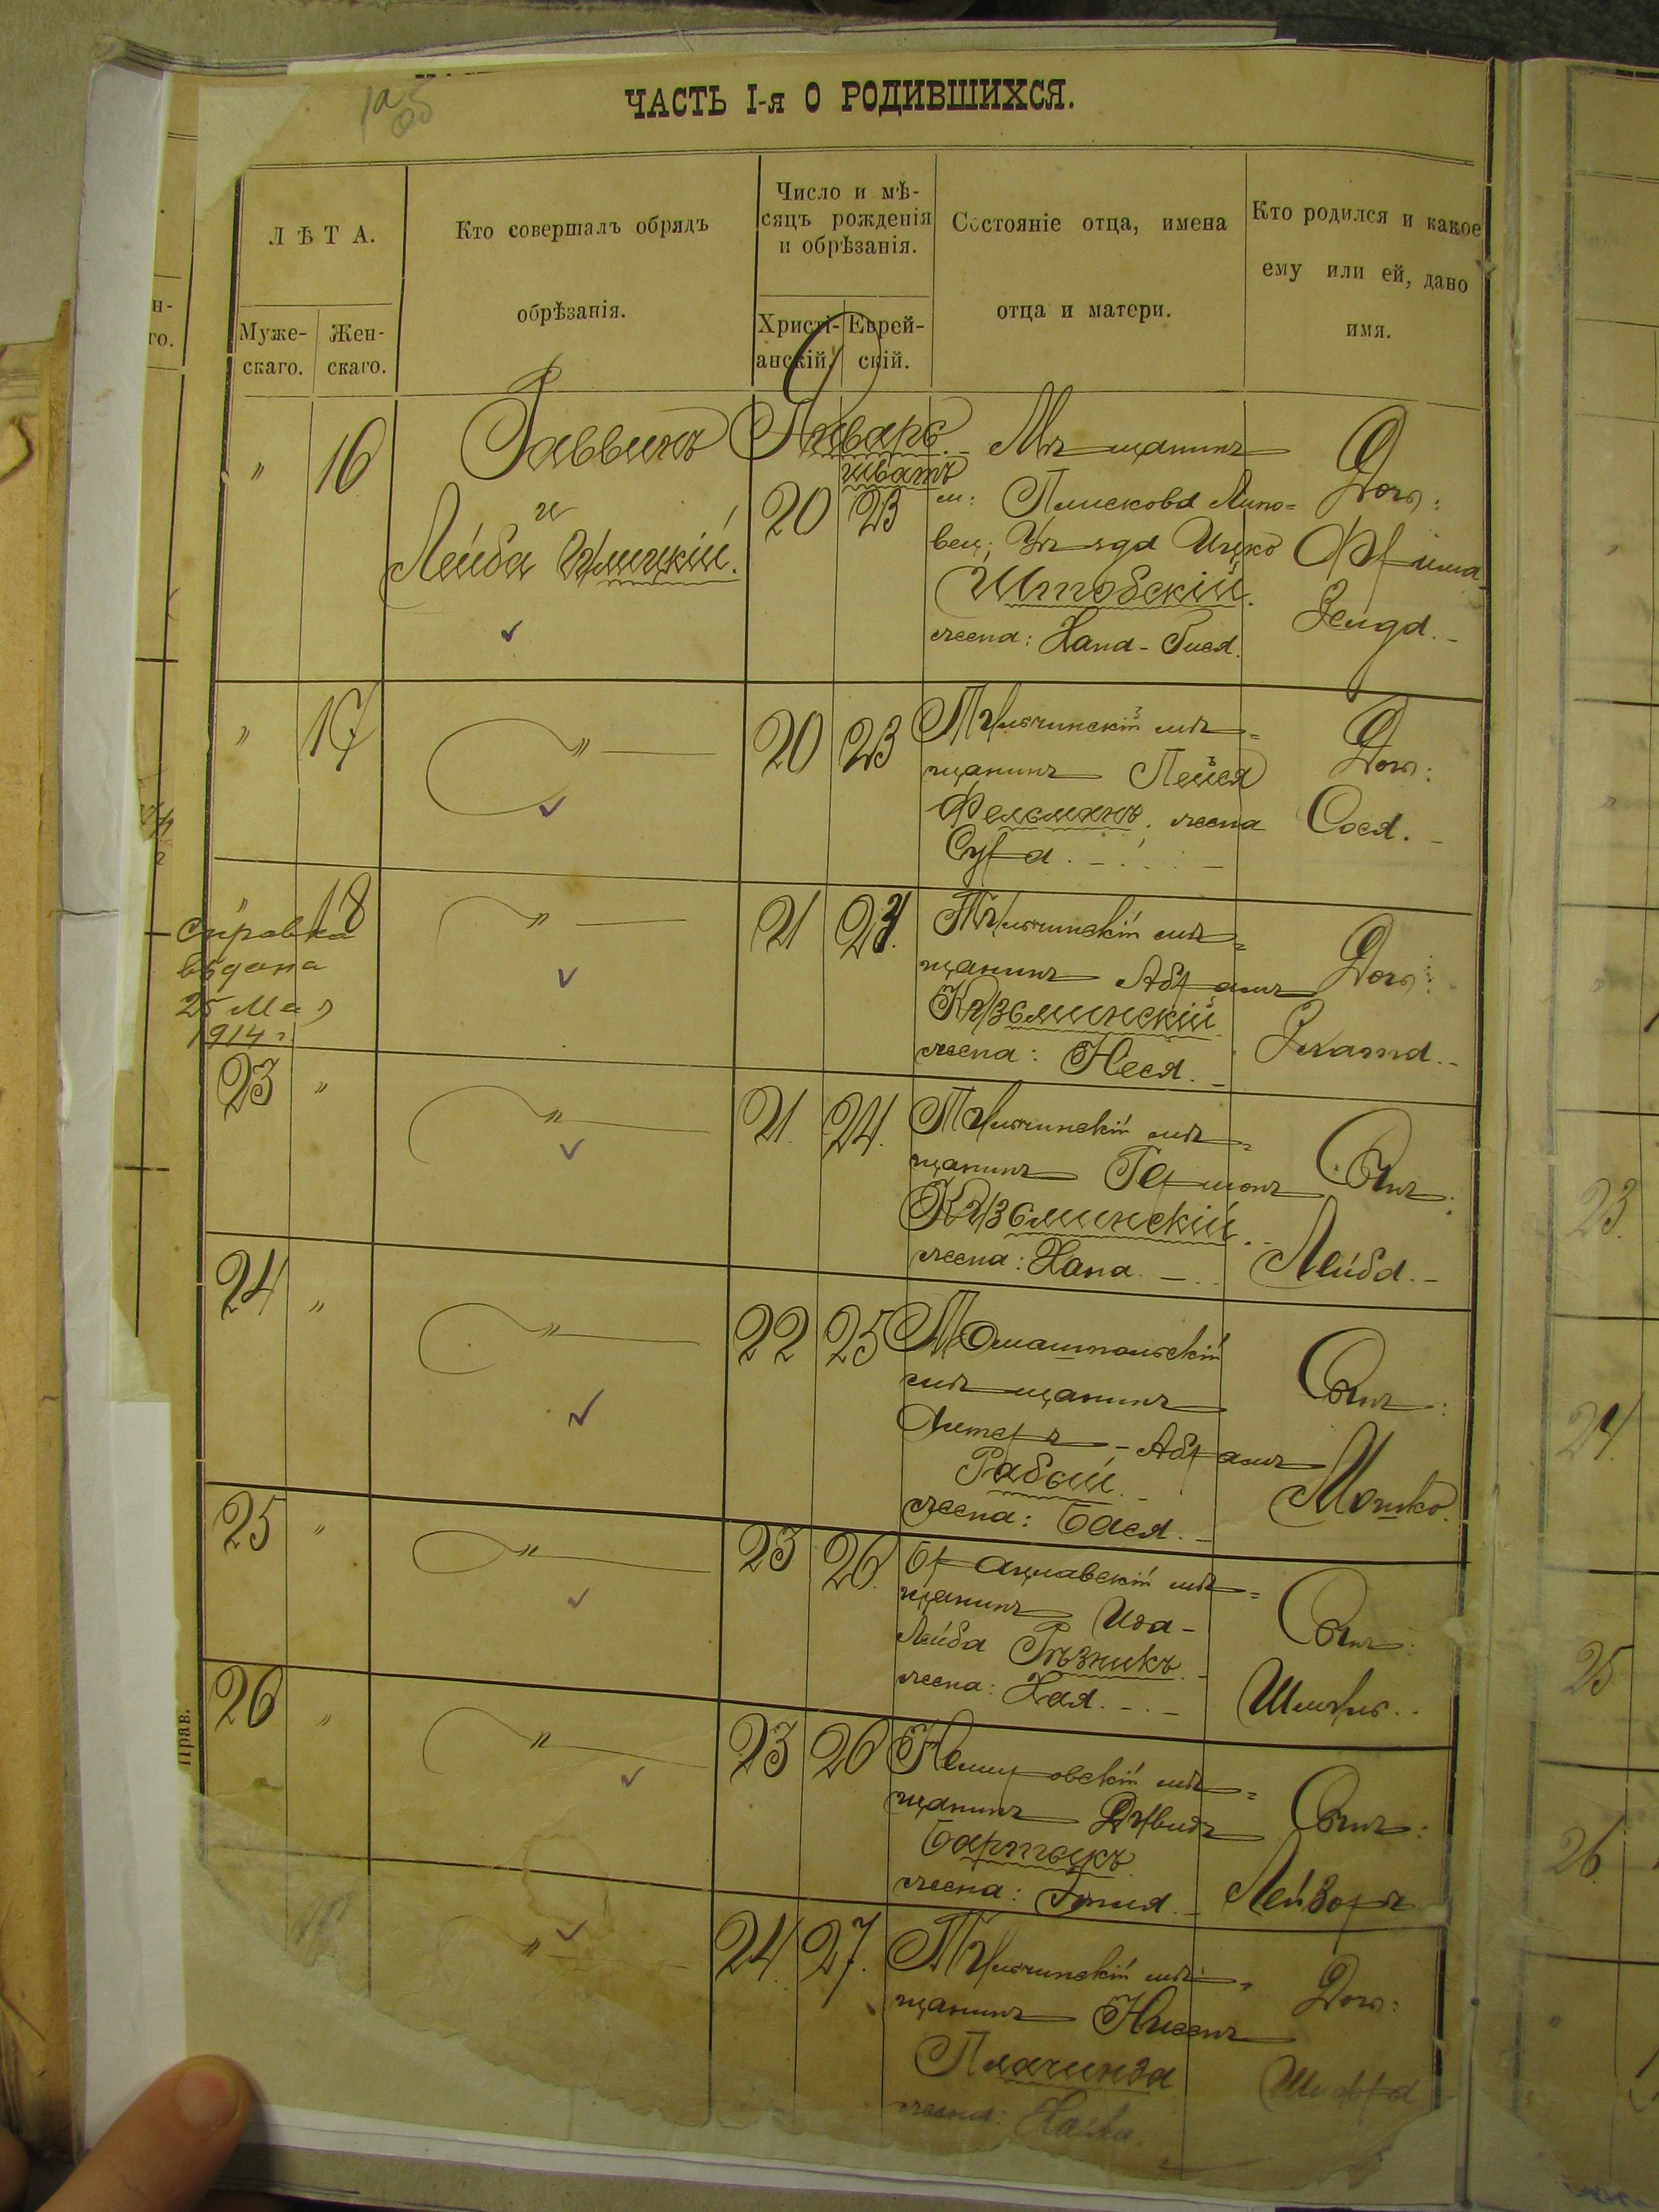 ЧАСТЬ I-я О РОДИВШИХСЯ.
ЛѢТА.
Муже-
скаго.
Жен-
скаго.
Кто совершалъ обрядъ
обрѣзанія.
Число и мѣ-
сяцъ рожденія
и обрѣзанія.
Христі-
анскій.
Еврей-
скій.
Состояніе отца, имена
отца и матери.
Кто родился и какое
ему или ей, дано
имя.
" 16
Раввинъ
и
Лейба
Январь
шватъ
20 23
Мѣщанинъ
м: Плискова Липо-
вец; Уѣзда Ицко
жена: Хана-Бися.
Дочь:
Фрима
Зейда.
" 17
" 20 23
Тульчинскій мѣ-
щанинъ Пейся
Фельманъ. жена
Сура.
Дочь:
Сося.
" 18
Справка
выдана
25 Мая
1914 г.
" 21 24.
Тульчинскій мѣ-
щанинъ Абрамъ
Кузьминскій
жена: Неся.
Дочь:
Злата.
23 "
" 21. 24.
Тульчинскій мѣ-
щанинъ Гершонъ
Кузьминскій.
жена: Хана.
Сынъ:
Лейба.
24 "
" 22 25
Томашпольскій
мѣщанинъ
Альтеръ-Абрамъ
Рабый.
жена: Бася.
Сынъ:
Мошко.
25 "
" 23 26.
Брацлавскій мѣ-
щанинъ
Лейба Рѣзникъ
жена: Хая.
Сынъ:
Шмуль.
26 "
" 23 26
Немировскій мѣ-
щанинъ Дувидъ
жена:
Сынъ:
Лейзоръ
Прав.
" 24. 27.
Тульчинскій мѣ-
щанинъ Нисенъ
Плачинда
жена: Хайка
Дочь:
Шифра
23.
24.
25
26.